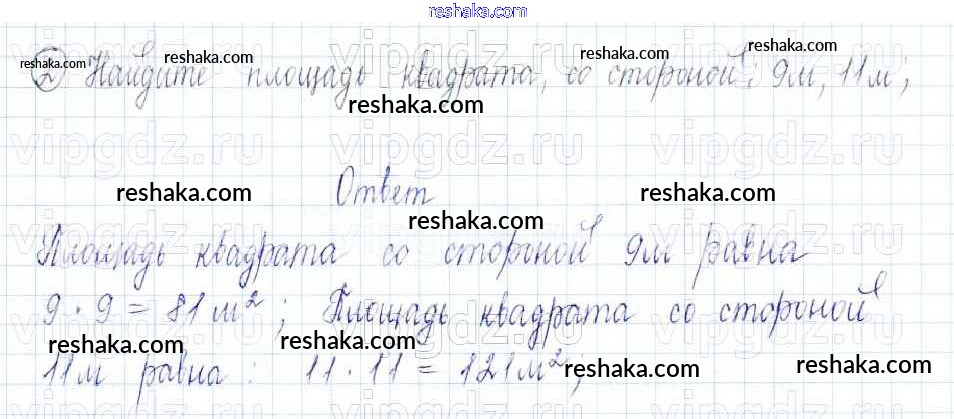 reshaka.com
② Найдите площадь квадрата, со стороной: 9м, 11м;
reshaka.com reshaka.com reshaka.com reshaka.com
reshaka.com
vipgdz.ru vipgdz.ru vipgdz.ru
Ответ
reshaka.com reshaka.com reshaka.com
Площадь квадрата со стороной 9м равна
vipgdz.ru vipgdz.ru vipgdz.ru
9 · 9 = 81 м²; Площадь квадрата со стороной
reshaka.com reshaka.com reshaka.com
11м равна: 11 · 11 = 121м²;